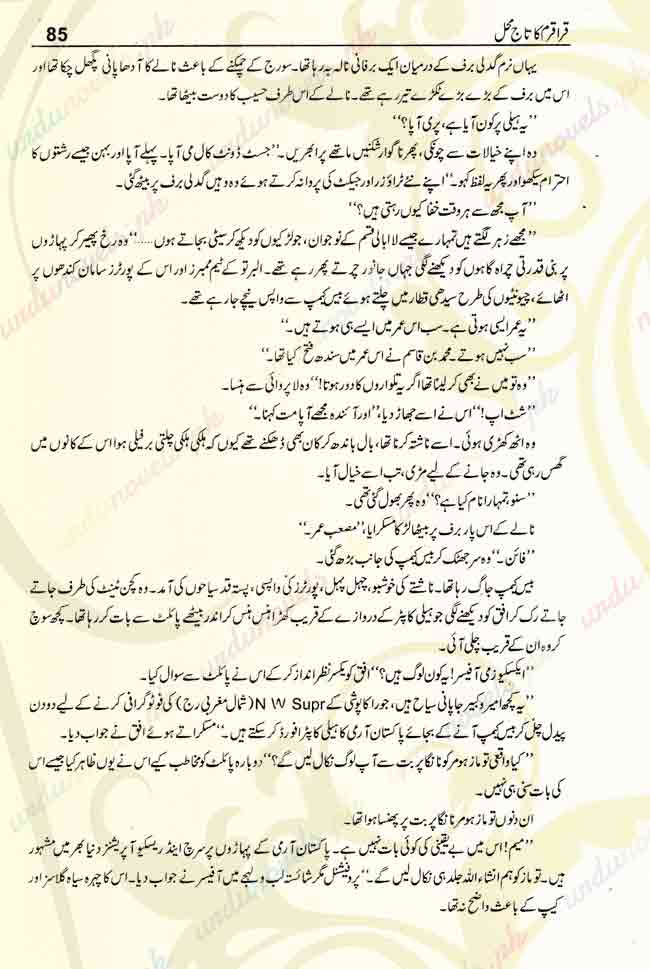 قراقرم کا تاج محل
85
یہاں نرم گدلی برف کے درمیان ایک برفانی نالہ بہہ رہا تھا۔ سورج کے چمکنے کے باعث نالے کا آدھا پانی پگھل چکا تھا اور
اس میں برف کے بڑے بڑے ٹکڑے تیر رہے تھے۔ نالے کے اس طرف حسیب کا دوست بیٹھا تھا۔
”یہ ہیلی پر کون آیا ہے، پری آپا؟“
وہ اپنے خیالات سے چونکی، پھر ناگوار شکنیں ماتھے پر ابھریں۔ ”جسٹ ڈونٹ کال می آپا۔ پہلے آپا اور بہن جیسے رشتوں کا
احترام سیکھو اور پھر یہ لفظ کہو۔“ اپنے نئے ٹراؤزر اور جیکٹ کی پروا نہ کرتے ہوئے وہ وہیں گدلی برف پر بیٹھ گئی۔
”آپ مجھ سے ہر وقت خفا کیوں رہتی ہیں؟“
”مجھے زہر لگتے ہیں تمہارے جیسے لاابالی قسم کے نوجوان، جو لڑکیوں کو دیکھ کر سیٹی بجاتے ہوں......“ وہ رخ پھیر کر پہاڑوں
پر بنی قدرتی چراگاہوں کو دیکھنے لگی جہاں جانور چرتے پھر رہے تھے۔ البرٹو کے ٹیم ممبرز اور اس کے پورٹرز سامان کندھوں پر
اٹھائے، چیونٹیوں کی طرح سیدھی قطار میں چلتے ہوئے بیس کیمپ سے واپس نیچے جا رہے تھے۔
”یہ عمر ایسی ہوتی ہے۔ سب اس عمر میں ایسے ہی ہوتے ہیں۔“
”سب نہیں ہوتے۔ محمد بن قاسم نے اس عمر میں سندھ فتح کیا تھا۔“
”وہ تو میں نے بھی کر لینا تھا اگر یہ تلواروں کا دور ہوتا!“ وہ لاپروائی سے ہنسا۔
”شٹ اپ!“ اس نے اسے جھاڑ دیا، ”اور آئندہ مجھے آپا مت کہنا۔“
وہ اٹھ کھڑی ہوئی۔ اسے ناشتہ کرنا تھا، بال باندھ کر کان بھی ڈھکنے تھے کیوں کہ ہلکی ہلکی چلتی برفیلی ہوا اس کے کانوں میں
گھس رہی تھی۔ وہ جانے کے لیے مڑی، تب اسے خیال آیا۔
”سنو، تمہارا نام کیا ہے؟“ وہ پھر بھول گئی تھی۔
نالے کے اس پار برف پر بیٹھا لڑکا مسکرایا، ”مصعب عمر۔“
”فائن۔“ وہ سر جھٹک کر بیس کیمپ کی جانب بڑھ گئی۔
بیس کیمپ جاگ رہا تھا۔ ناشتے کی خوشبو، چہل پہل، پورٹرز کی واپسی، پستہ قد سیاحوں کی آمد۔ وہ کچن ٹینٹ کی طرف جاتے
جاتے رک کر افق کو دیکھنے لگی جو ہیلی کاپٹر کے دروازے کے قریب کھڑا ہنس ہنس کر اندر بیٹھے پائلٹ سے بات کر رہا تھا۔ کچھ سوچ
کر وہ ان کے قریب چلی آئی۔
”ایکسکیوز می آفیسر! یہ کون لوگ ہیں؟“ افق کو یکسر نظر انداز کر کے اس نے پائلٹ سے سوال کیا۔
”یہ کچھ امیر و کبیر جاپانی سیاح ہیں، جو راکاپوشی کے N W Supr (شمال مغربی رج) کی فوٹو گرافی کرنے کے لیے دو دن
پیدل چل کر بیس کیمپ آنے کے بجائے پاکستان آرمی کا ہیلی کاپٹر افورڈ کر سکتے ہیں۔“ مسکراتے ہوئے افق نے جواب دیا۔
”کیا واقعی تو ماز ہومر کو نانگا پربت سے آپ لوگ نکال لیں گے؟“ دوبارہ پائلٹ کو مخاطب کیے اس نے یوں ظاہر کیا جیسے اس
کی بات سنی ہی نہیں۔
ان دنوں تو ماز ہومر نانگا پربت پر پھنسا ہوا تھا۔
”میم! اس میں بے یقینی کی کوئی بات نہیں ہے۔ پاکستان آرمی کے پہاڑوں پر سرچ اینڈ ریسکیو آپریشنز دنیا بھر میں مشہور
ہیں۔ تو ماز کو ہم انشاء اللہ جلد ہی نکال لیں گے۔“ پروفیشنل مگر شائستہ لب و لہجے میں آفیسر نے جواب دیا۔ اس کا چہرہ سیاہ گلاسز اور
کیپ کے باعث واضح نہ تھا۔
urdunovels.pk